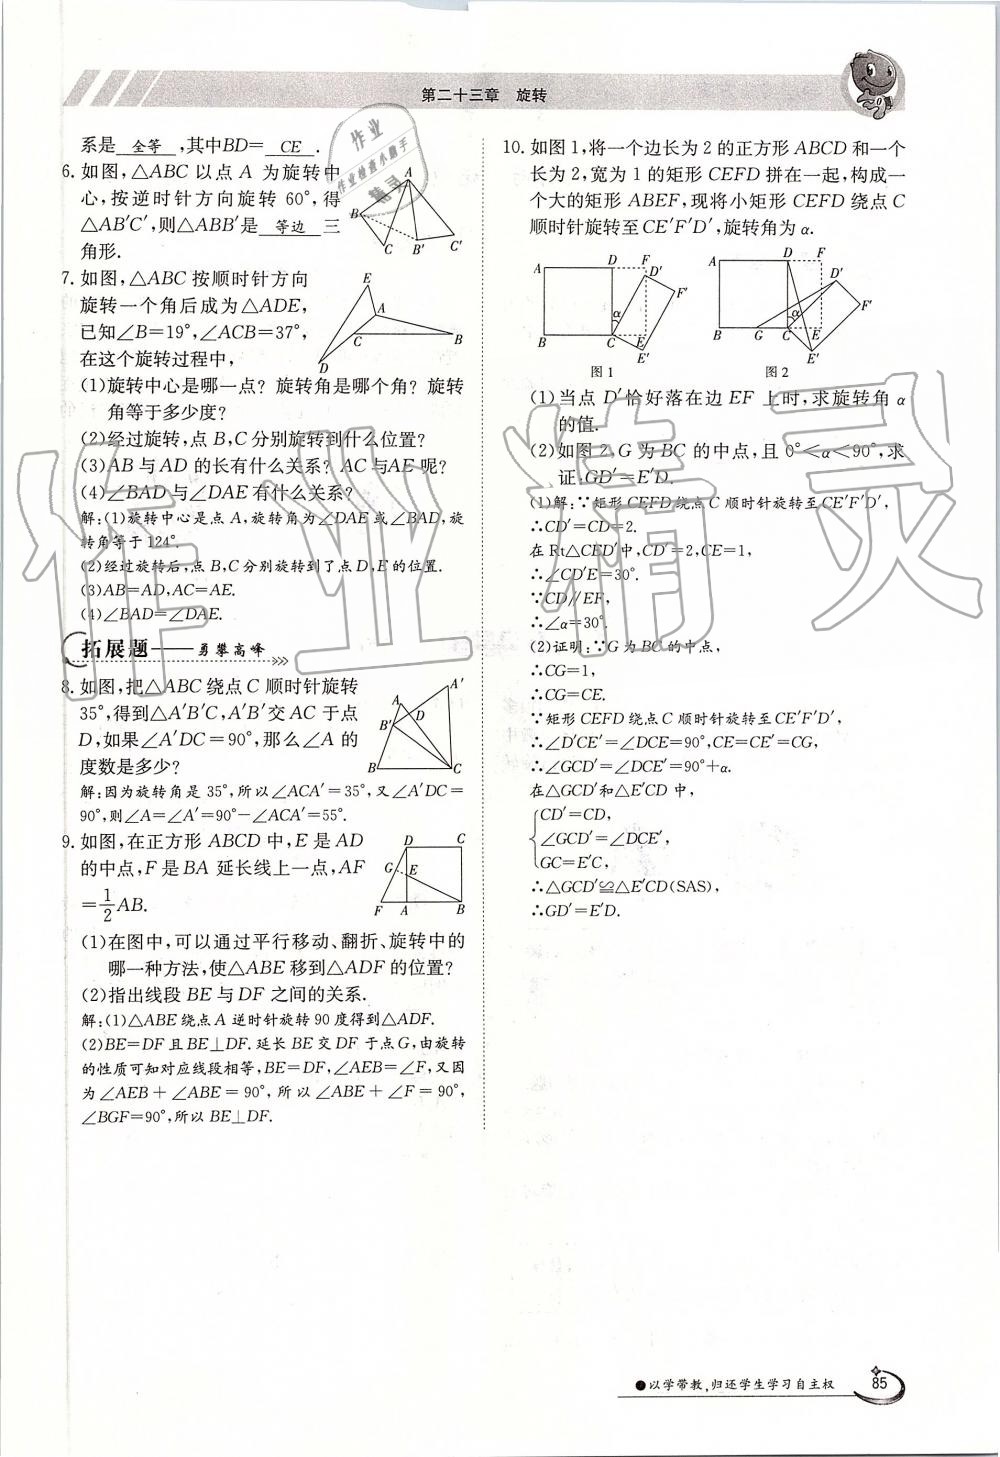 第二十三章 旋转
系是 全等 ,其中BD= CE .
6. 如图,△ABC 以点 A 为旋转中
心,按逆时针方向旋转 60°,得
△AB′C′,则△ABB′是 等边 三
角形.
A
B
C
B′
C′
7. 如图,△ABC 按顺时针方向
旋转一个角后成为△ADE,
已知∠B=19°,∠ACB=37°,
在这个旋转过程中,
E
A
C
B
D
(1)旋转中心是哪一点? 旋转角是哪个角? 旋转
角等于多少度?
(2)经过旋转,点 B,C 分别旋转到什么位置?
(3)AB 与 AD 的长有什么关系? AC 与AE 呢?
(4)∠BAD 与∠DAE 有什么关系?
解:(1)旋转中心是点 A,旋转角为∠DAE 或∠BAD,旋
转角等于 124°.
(2)经过旋转后,点 B,C 分别旋转到了点 D,E 的位置.
(3)AB=AD,AC=AE.
(4)∠BAD=∠DAE.
拓展题——勇攀高峰
8. 如图,把△ABC 绕点 C 顺时针旋转
35°,得到△A′B′C,A′B′交 AC 于点
D,如果∠A′DC=90°,那么∠A 的
度数是多少?
A′
A
D
B′
B
C
解:因为旋转角是 35°,所以∠ACA′=35°,又∠A′DC=
90°,则∠A=∠A′=90°-∠ACA′=55°.
9. 如图,在正方形 ABCD 中,E 是 AD
的中点,F 是 BA 延长线上一点,AF
=1/2AB.
D
C
G
E
F
A
B
(1)在图中,可以通过平行移动、翻折、旋转中的
哪一种方法,使△ABE 移到△ADF 的位置?
(2)指出线段 BE 与 DF 之间的关系.
解:(1)△ABE 绕点 A 逆时针旋转 90 度得到△ADF.
(2)BE=DF 且 BE⊥DF.延长 BE 交 DF 于点 G,由旋转
的性质可知对应线段相等,BE=DF,∠AEB=∠F,又因
为∠AEB+∠ABE=90°,所以∠ABE+∠F=90°,
∠BGF=90°,所以 BE⊥DF.
10. 如图 1,将一个边长为 2 的正方形 ABCD 和一个
长为 2,宽为 1 的矩形 CEFD 拼在一起,构成一
个大的矩形 ABEF,现将小矩形 CEFD 绕点 C
顺时针旋转至CE′F′D′,旋转角为 α.
A
D
F
D′
F′
α
B
C
E
E′
图 1
A
D
F
D′
F′
α
B
G
C
E
E′
图 2
(1)当点 D′恰好落在边 EF 上时,求旋转角 α
的值.
(2)如图 2,G 为 BC 的中点,且 0°<α<90°,求
证:GD′=E′D.
(1)解:∵矩形 CEFD 绕点 C 顺时针旋转至CE′F′D′,
∴CD′=CD=2.
在 Rt△CED′中,CD′=2,CE=1,
∴∠CD′E=30°.
∵CD∥EF,
∴∠α=30°.
(2)证明:∵G 为 BC 的中点,
∴CG=1,
∴CG=CE.
∵矩形 CEFD 绕点 C 顺时针旋转至CE′F′D′,
∴∠D′CE′=∠DCE=90°,CE=CE′=CG,
∴∠GCD′=∠DCE′=90°+α.
在△GCD′和△E′CD 中,
CD′=CD,
∠GCD′=∠DCE′,
GC=E′C,
∴△GCD′≌△E′CD(SAS),
∴GD′=E′D.
作业精灵
作业
作业检查小助手
●以学带教,归还学生学习自主权
85